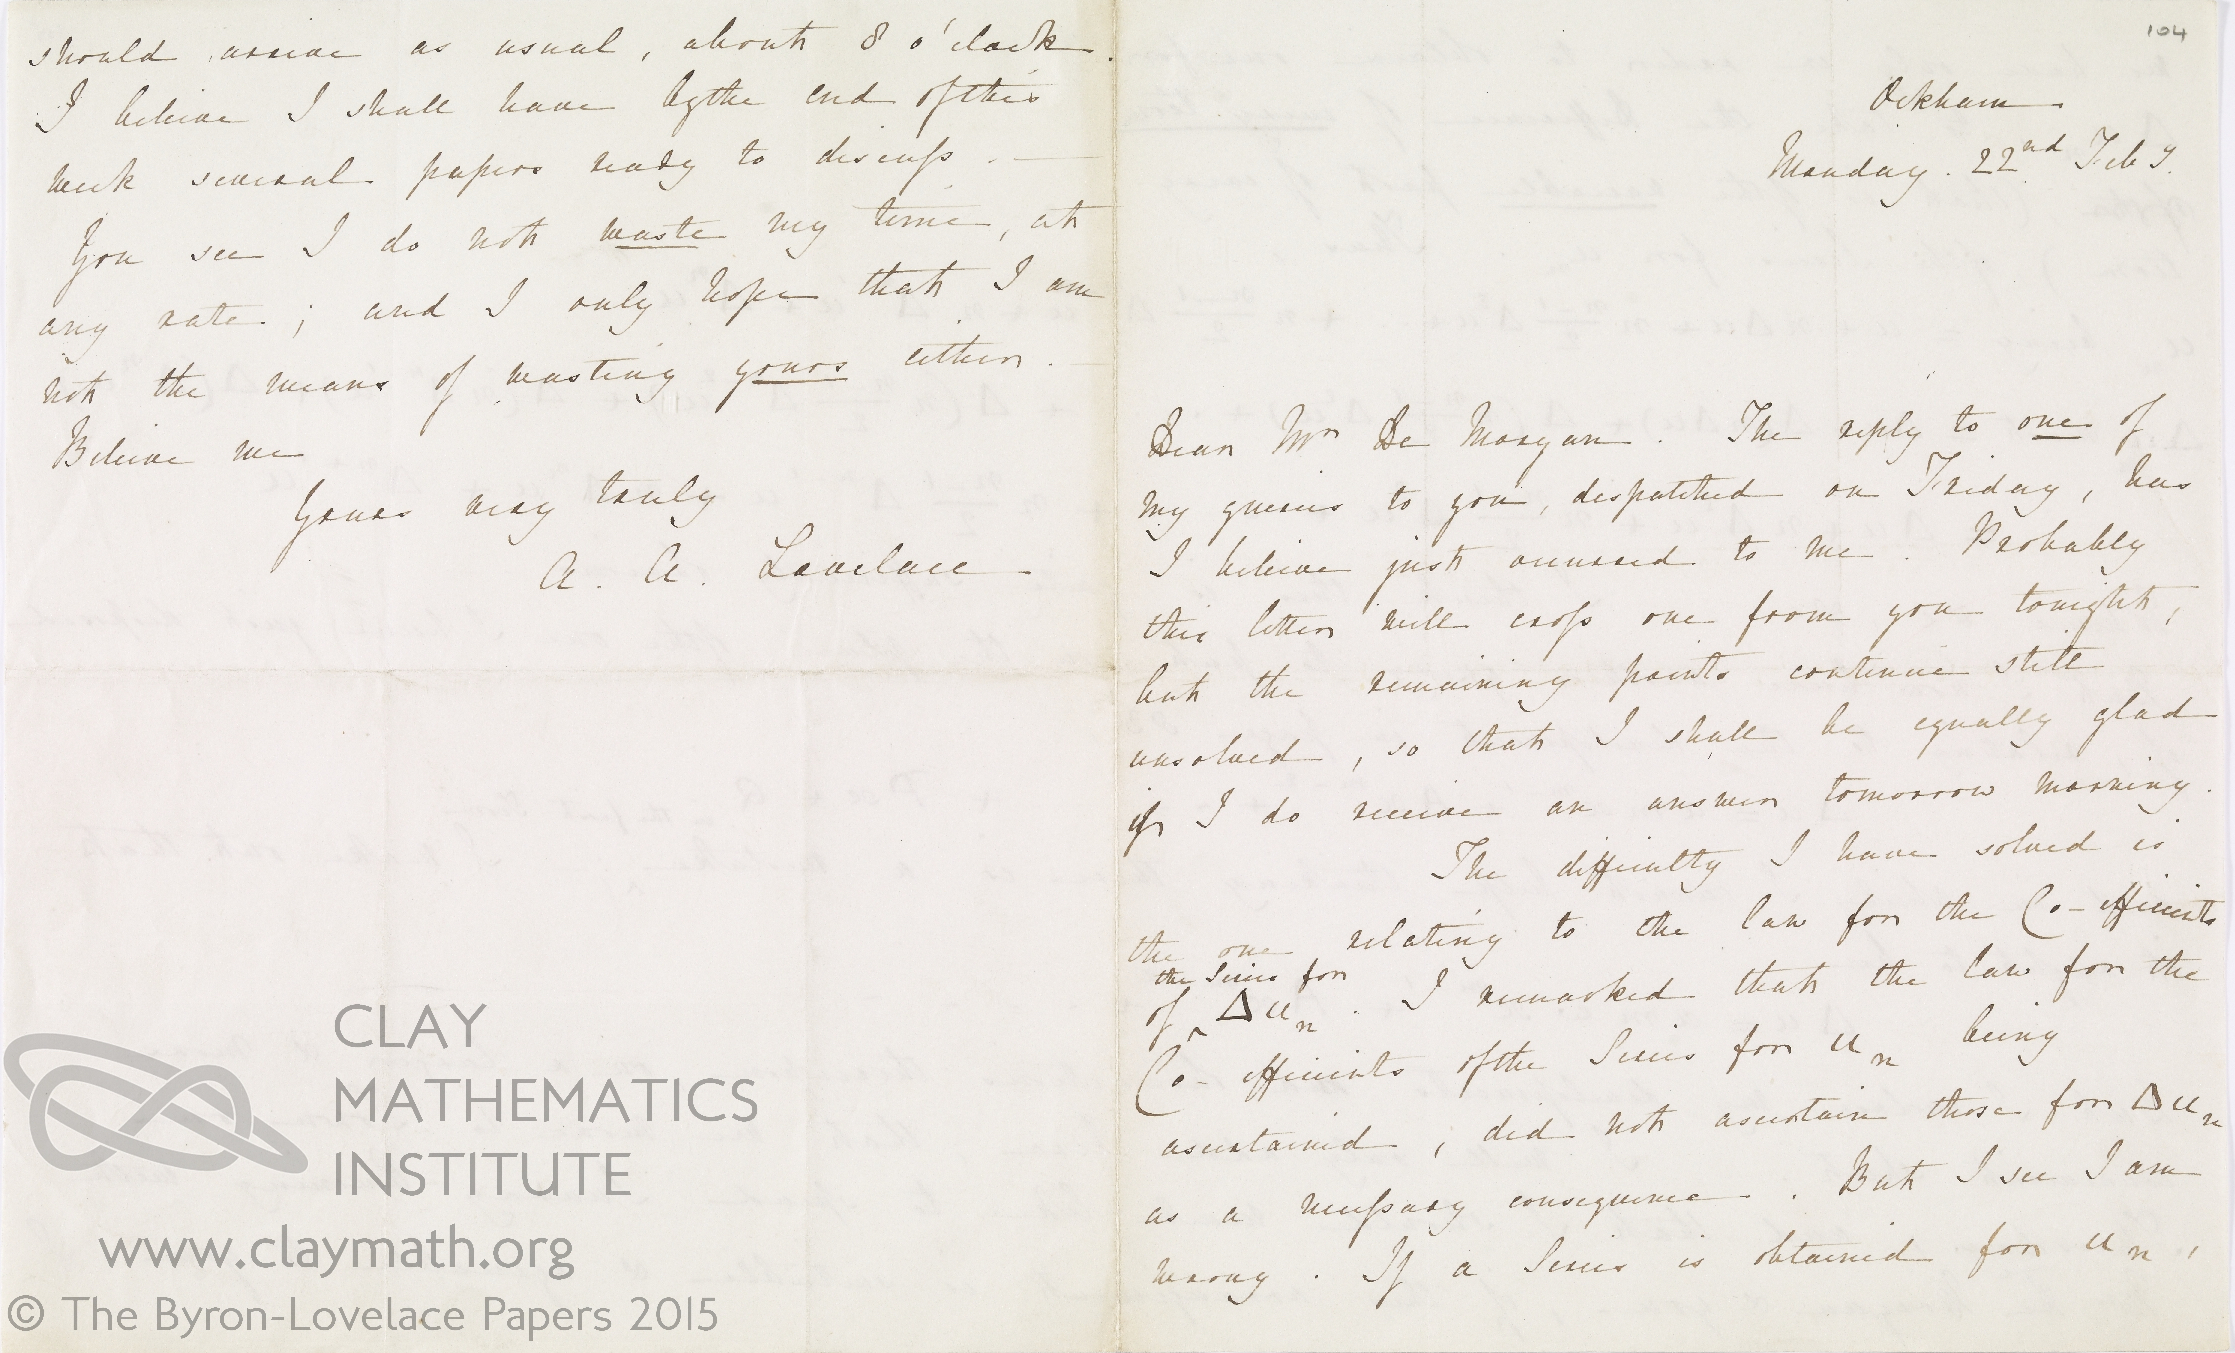 should arrive as usual, about 8 o'clock.
I believe I shall have by the end of this
week several papers ready to discuss. —
You see I do not waste my time, at
any rate; and I only hope that I am
not the means of wasting yours either.
Believe me
Yours very truly
A. A. Lovelace
104
Ockham
Monday. 22nd Feby.
Dear Mr De Morgan. The reply to one of
my queries to you, despatched on Friday, has
I believe just occurred to me. Probably
this letter will cross one from you tonight,
but the remaining points continue still
unsolved, so that I shall be equally glad
if I do receive an answer tomorrow morning.
The difficulty I have solved is
the one relating to the law for the Co-efficients
the Series for
of ^ Δuₙ. I remarked that the law for the
Co-efficients of the Series for uₙ being
ascertained, did not ascertain those for Δuₙ
as a necessary consequence. But I see I am
wrong. If a Series is obtained for uₙ,
CLAY
MATHEMATICS
INSTITUTE
www.claymath.org
© The Byron-Lovelace Papers 2015